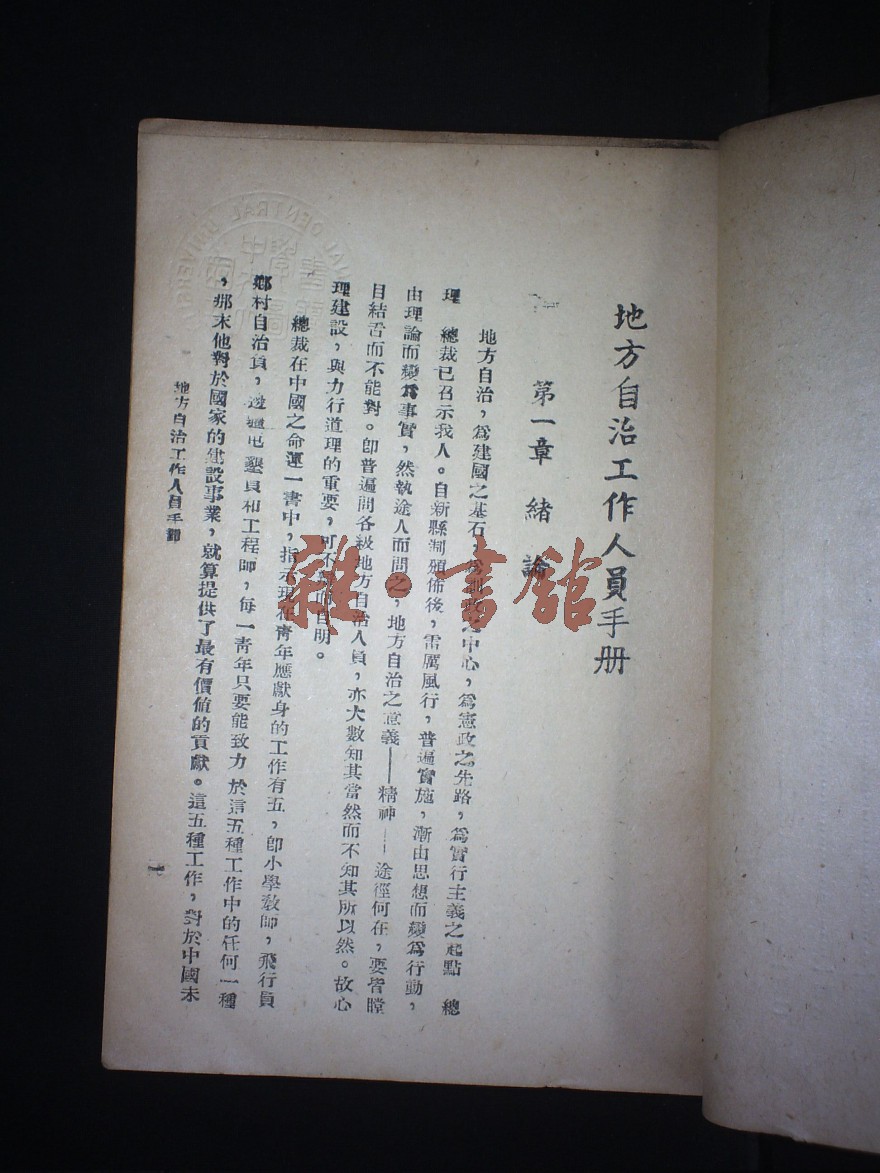 地方自治工作人員手册
第一章 緒論
地方自治，爲建國之基石，爲訓政之中心，爲憲政之先路，爲實行主義之起點 總
理 總裁已召示我人。自新縣制頒佈後，雷厲風行，普遍實施，漸由思想而變爲行動，
由理論而變爲事實，然執途人而問之，地方自治之意義——精神——途徑何在，要皆瞠
目結舌而不能對。卽普遍問各級地方自治人員，亦大數知其當然而不知其所以然。故心
理建設，與力行道理的重要，可不 而自明。
總裁在中國之命運一書中，指示現在靑年應獻身的工作有五，卽小學敎師，飛行員
鄉村自治員，邊疆屯墾員和工程師，每一靑年只要能致力 於這五種工作中的任何一種
，那末他對於國家的建設事業，就算提供了最有價値的貢獻。這五種工作，對於中國未
地方自治工作人員手册
一
雜·書舘